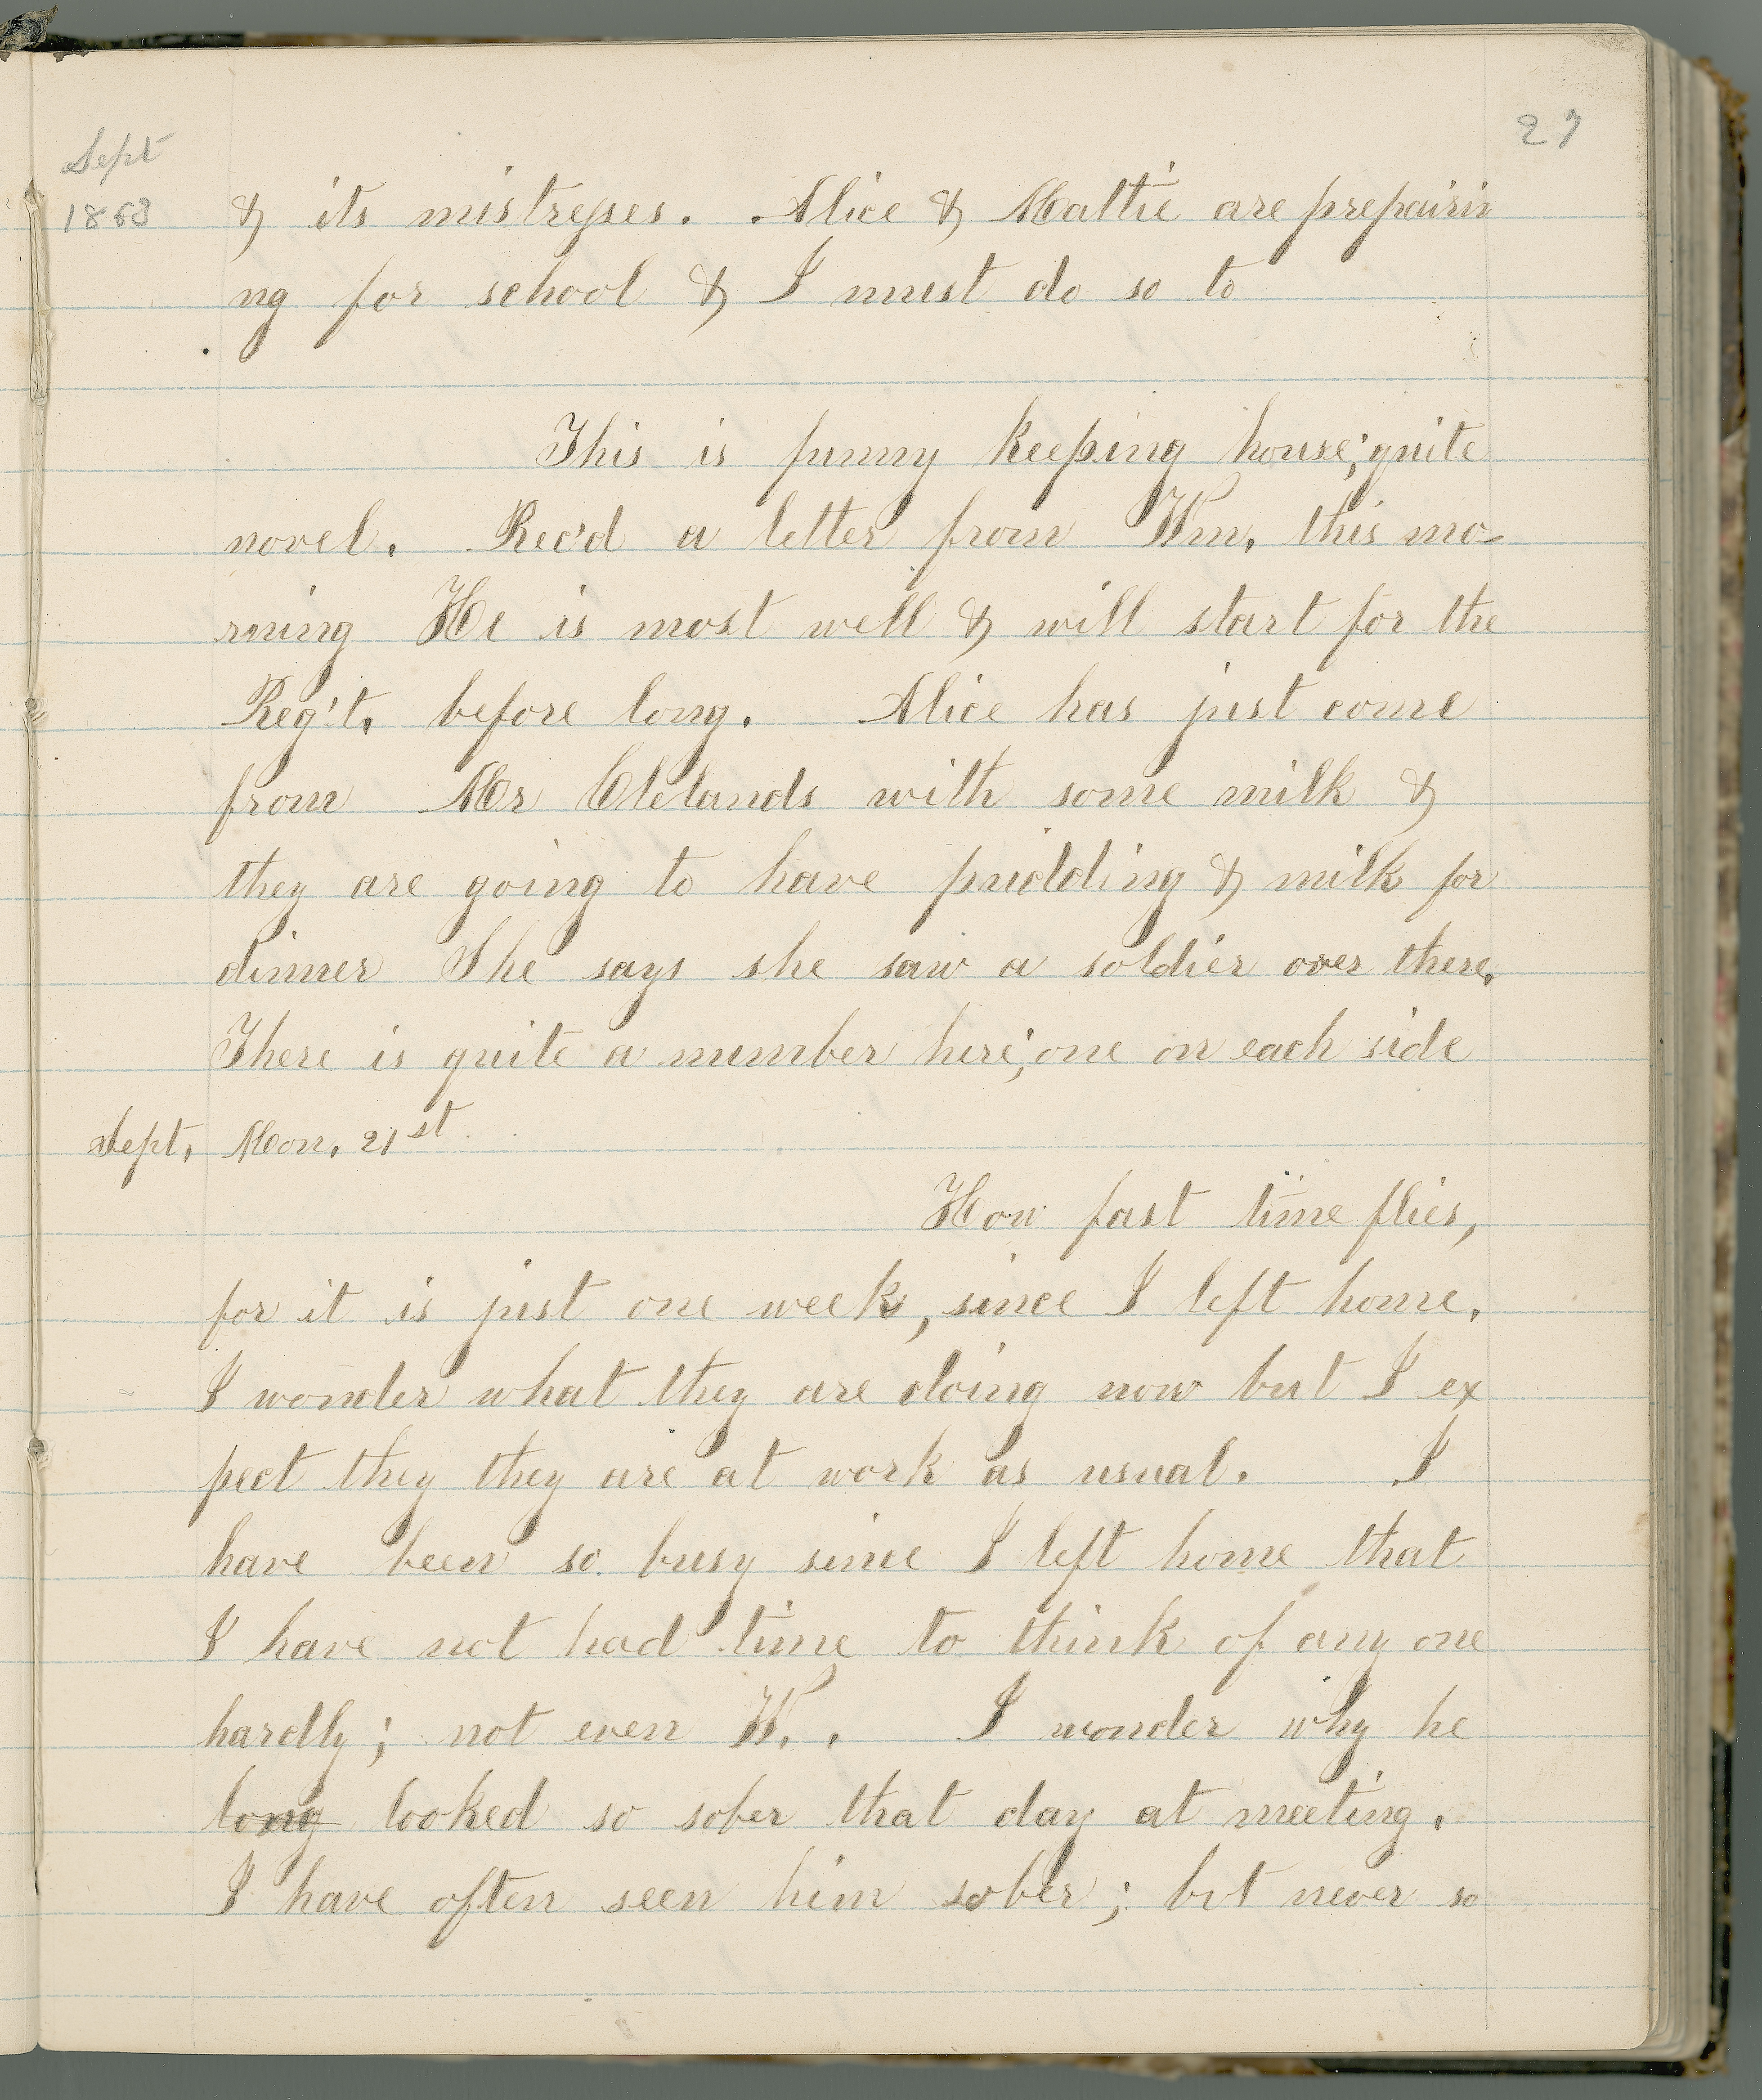 27
Sept
1863
& its mistresses. Alice & Mattie are prepairin
ng for school & I must do so to
This is funny keeping house; quite
novel. Rec'd a letter from Wm. this mo-
rning He is most well & will start for the
Reg't. before long. Alice has just come
from Mr Clelands with some milk &
they are going to have pudding & milk for
dinner She says she saw a soldier over there.
There is quite a number here; one on each side
Sept. Mon. 21st
How fast time flies,
for it is just one week, since I left home.
I wonder what they are doing now but I ex
pect they they are at work as usual. I
have been so busy since I left home that
I have not had time to think of any one
hardly; not even W. . I wonder why he
long looked so sober that day at meeting.
I have often seen him sober; but never so